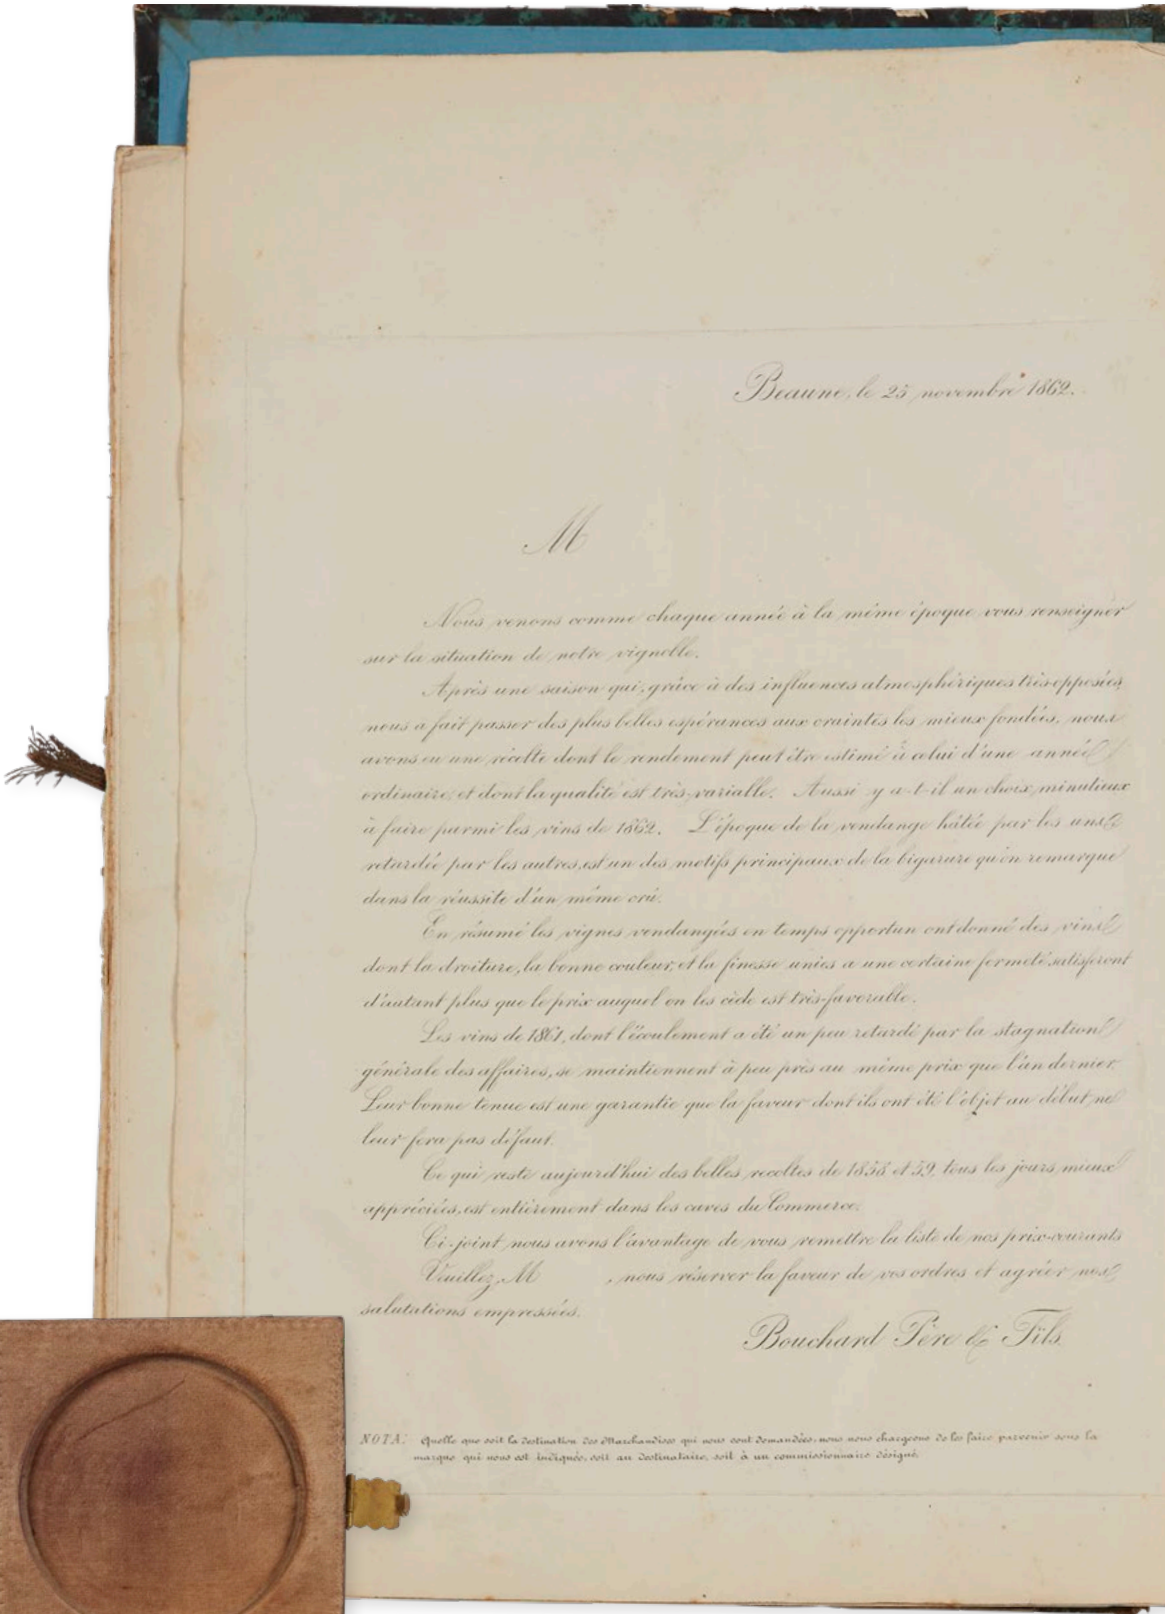 Beaune, le 25 novembre 1862.
M
Nous venons comme chaque année à la même époque vous renseigner
sur la situation de notre vignoble.
Après une saison qui, grâce à des influences atmosphériques très-opposées,
nous a fait passer des plus belles espérances aux craintes les mieux fondées, nous
avons eu une récolte dont le rendement peut être estimé à celui d'une année
ordinaire, et dont la qualité est très-variable. Aussi y a-t-il un choix minutieux
à faire parmi les vins de 1862. L'époque de la vendange hâtée par les uns
retardée par les autres, est un des motifs principaux de la bigarure qu'on remarque
dans la réussite d'un même crû.
En résumé les vignes vendangées en temps opportun ont donné des vins
dont la droiture, la bonne couleur, et la finesse unies a une certaine fermeté satisferont
d'autant plus que le prix auquel on les cède est très-favorable.
Les vins de 1861, dont l'écoulement a été un peu retardé par la stagnation
générale des affaires, se maintiennent à peu près au même prix que l'an dernier.
Leur bonne tenue est une garantie que la faveur dont ils ont été l'objet au début, ne
leur fera pas défaut.
Ce qui reste aujourd'hui des belles recoltes de 1858 et 59, tous les jours mieux
appréciées, est entièrement dans les caves du Commerce.
Ci-joint, nous avons l'avantage de vous remettre la liste de nos prix-courants
Veuillez, M , nous réserver la faveur de vos ordres et agréer nos
salutations empressées.
Bouchard Père & Fils.
NOTA: Quelle que soit la destination des Marchandises qui nous sont demandées, nous nous chargeons de les faire parvenir sous la
marque qui nous est indiquée, soit au destinataire, soit à un commissionnaire désigné.